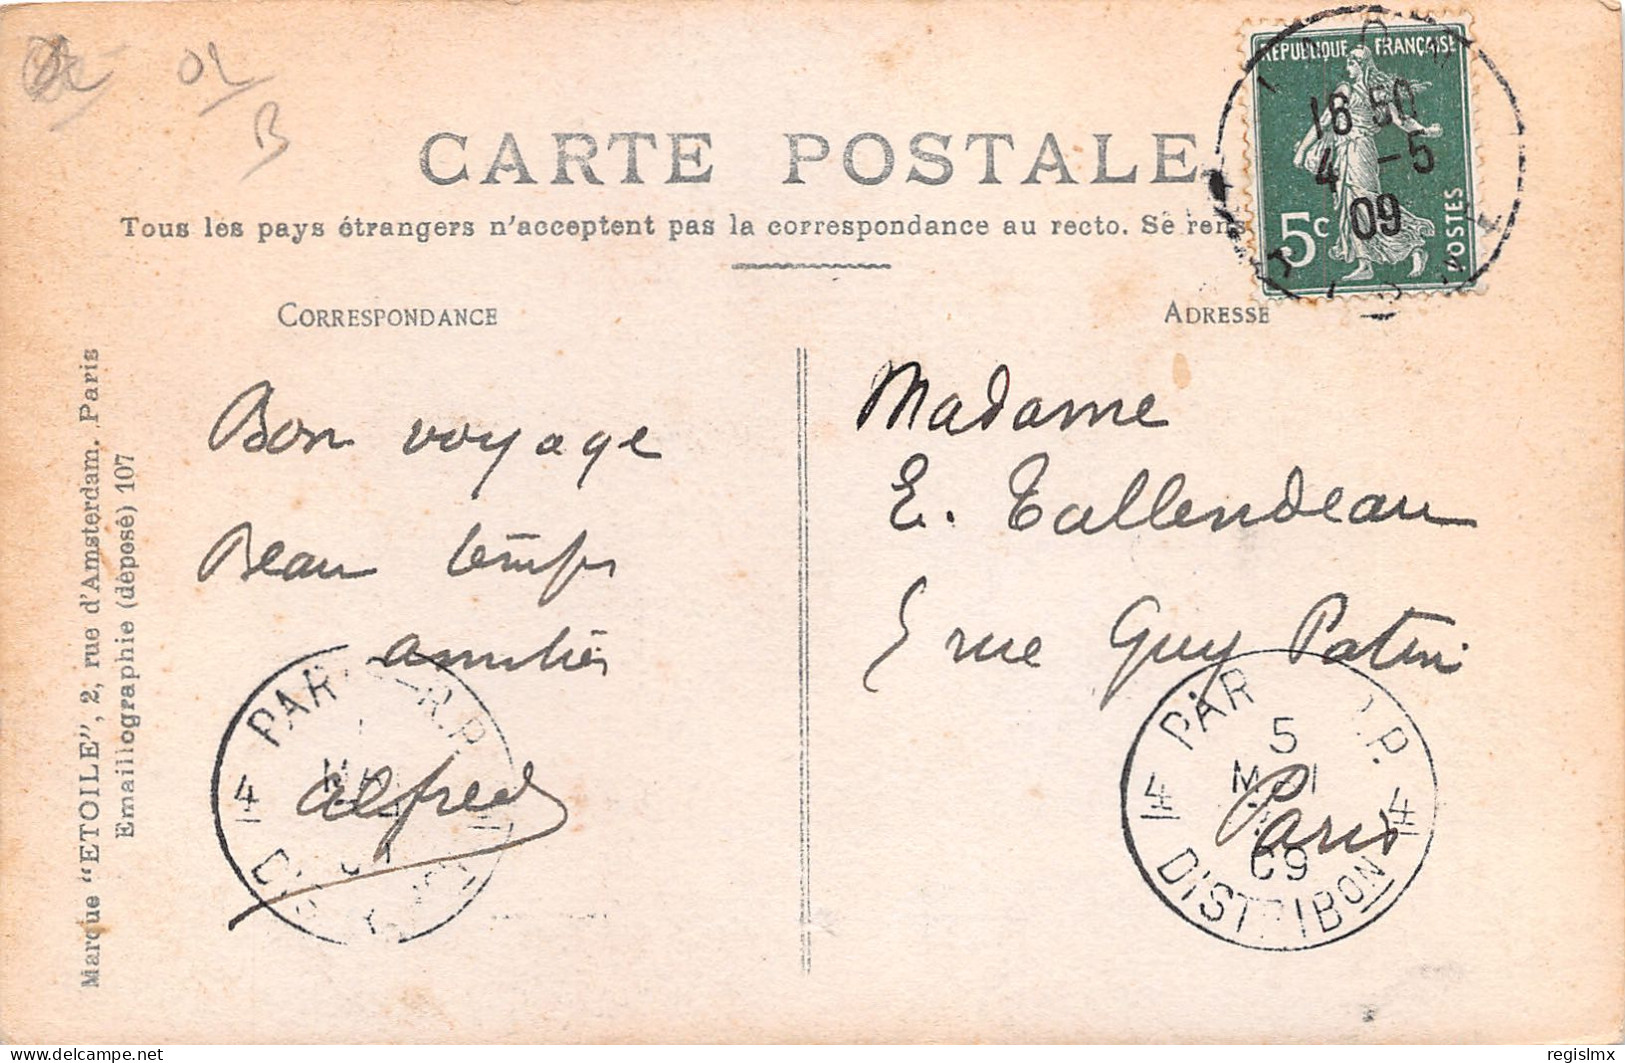 OL
B
CARTE POSTALE
Tous les pays étrangers n'acceptent pas la correspondance au recto. Se rens
REPUBLIQUE FRANÇAISE
16 50
4 -5
09
5c
POSTES
CORRESPONDANCE
ADRESSE
Bon voyage
Beau temps
amitiés
Alfred
Madame
E. Tallendeau
5 rue Guy Patin
Paris
PAR R.P.
4
PAR P.
5
MAI
09
4 4
DISTRIBON
Marque "ETOILE", 2, rue d'Amsterdam. Paris
Emaillographie (déposé) 107
delcampe.net
regislmx